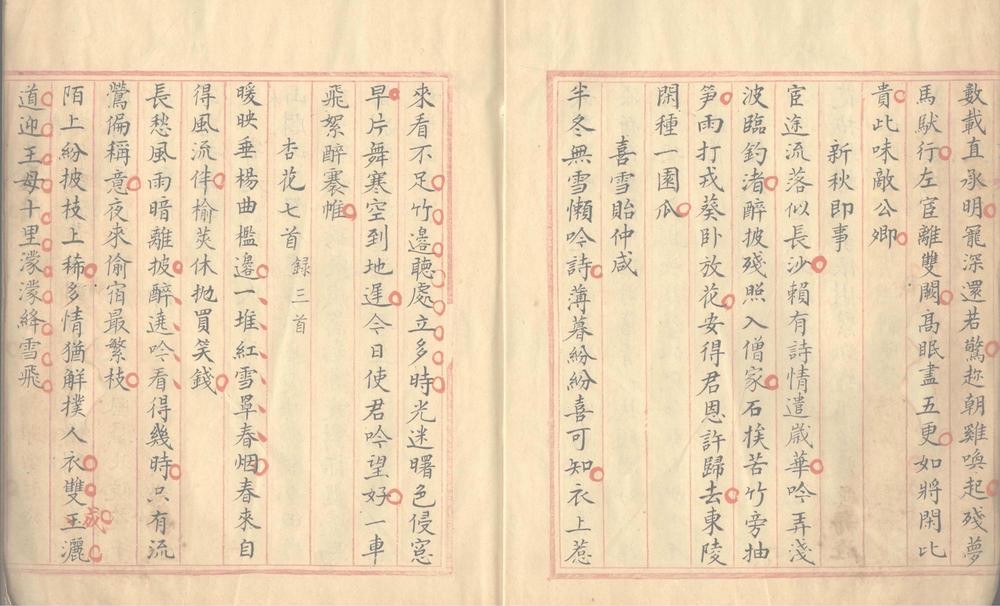 數載直承明寵深還若驚趂朝雞喚起殘夢
馬馱行左宦離雙闕高眠盡五更如將閑比
貴此味敵公卿
新秋即事
宦途流落似長沙賴有詩情遣歲華吟弄淺
波臨釣渚醉披殘照入僧家石挨苦竹旁抽
笋雨打戎葵卧放花安得君恩許歸去東陵
閑種一園瓜
喜雪貽仲咸
半冬無雪懶吟詩薄暮紛紛喜可知衣上惹
來看不足竹邊聽處立多時光迷曙色侵窓
早片舞寒空到地遲今日使君吟望好一車
飛絮醉褰帷
杏花七首 録三首
暖映垂楊曲檻邊一堆紅雪罩春烟春來自
得風流伴榆莢休抛買笑錢
長愁風雨暗離披醉遶吟看得幾時只有流
鶯偏稱意夜來偷宿最繁枝
陌上紛披枝上稀多情猶解撲人衣雙玉灑
成
道迎王母十里濛濛絳雪飛